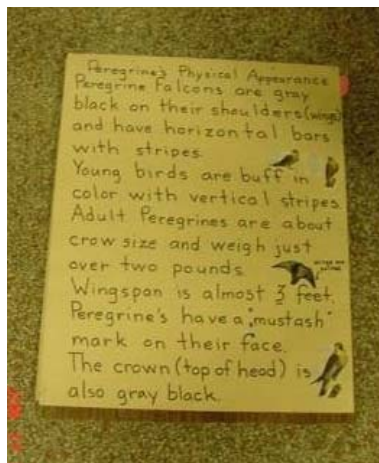 Peregrine's Physical Appearance
Peregrine Falcons are gray
black on their shoulders (wings)
and have horizontal bars
with stripes.
Young birds are buff in
color with vertical stripes.
Adult Peregrines are about
crow size and weigh just
over two pounds.
Wingspan is almost 3 feet.
Peregrine's have a "mustash"
mark on their face.
The crown (top of head) is
also gray black.